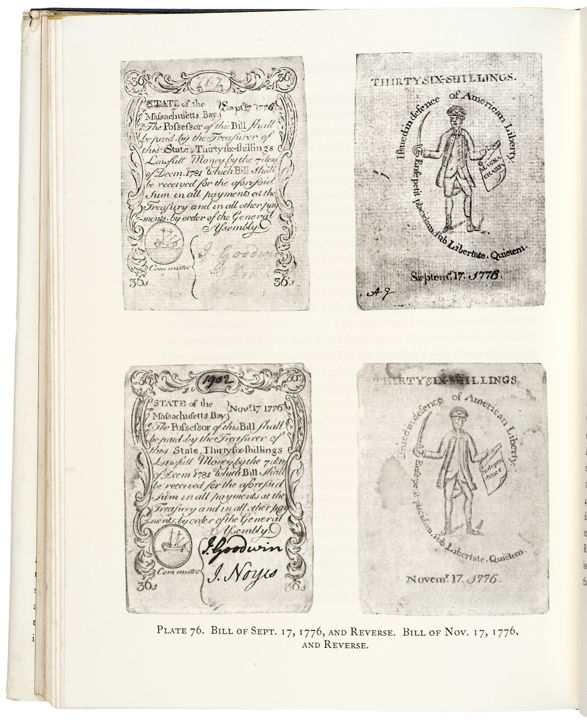 36
167
36
STATE of the
Massachusetts Bay.
Sept 17 1776
The Possessor of this Bill shall
be paid by the Treasurer of
this State, Thirty six shillings
Lawfull Money by the 7 day
of Decem 1781 which Bill shall
be received for the aforesaid
sum in all payments at the
Treasury and in all other pay
ments by order of the General
Assembly
J. Goodwin
Committee
36s
36s
THIRTY SIX SHILLINGS.
Issued in defence of American Liberty.
Ense petit placidam, sub Libertate, Quietem.
MAGNA
CHARTA
Septemr. 17. 1776.
A J
1902
36
STATE of the
Massachusetts Bay
Novr. 17 1776
The Possessor of this Bill shall
be paid by the Treasurer of
this State, Thirty six shillings
Lawfull Money by the 7 day
of Decem 1781 which Bill shall
be received for the aforesaid
sum in all payments at the
Treasury and in all other pay
ments by order of the General
Assembly
J. Goodwin
J. Noyes
Committee
36
36
THIRTY SIX SHILLINGS
Issued in defence of American Liberty.
Ense petit placidam, sub Libertate, Quietem.
Novemr. 17. 1776.
PLATE 76. BILL OF SEPT. 17, 1776, AND REVERSE. BILL OF NOV. 17, 1776,
AND REVERSE.